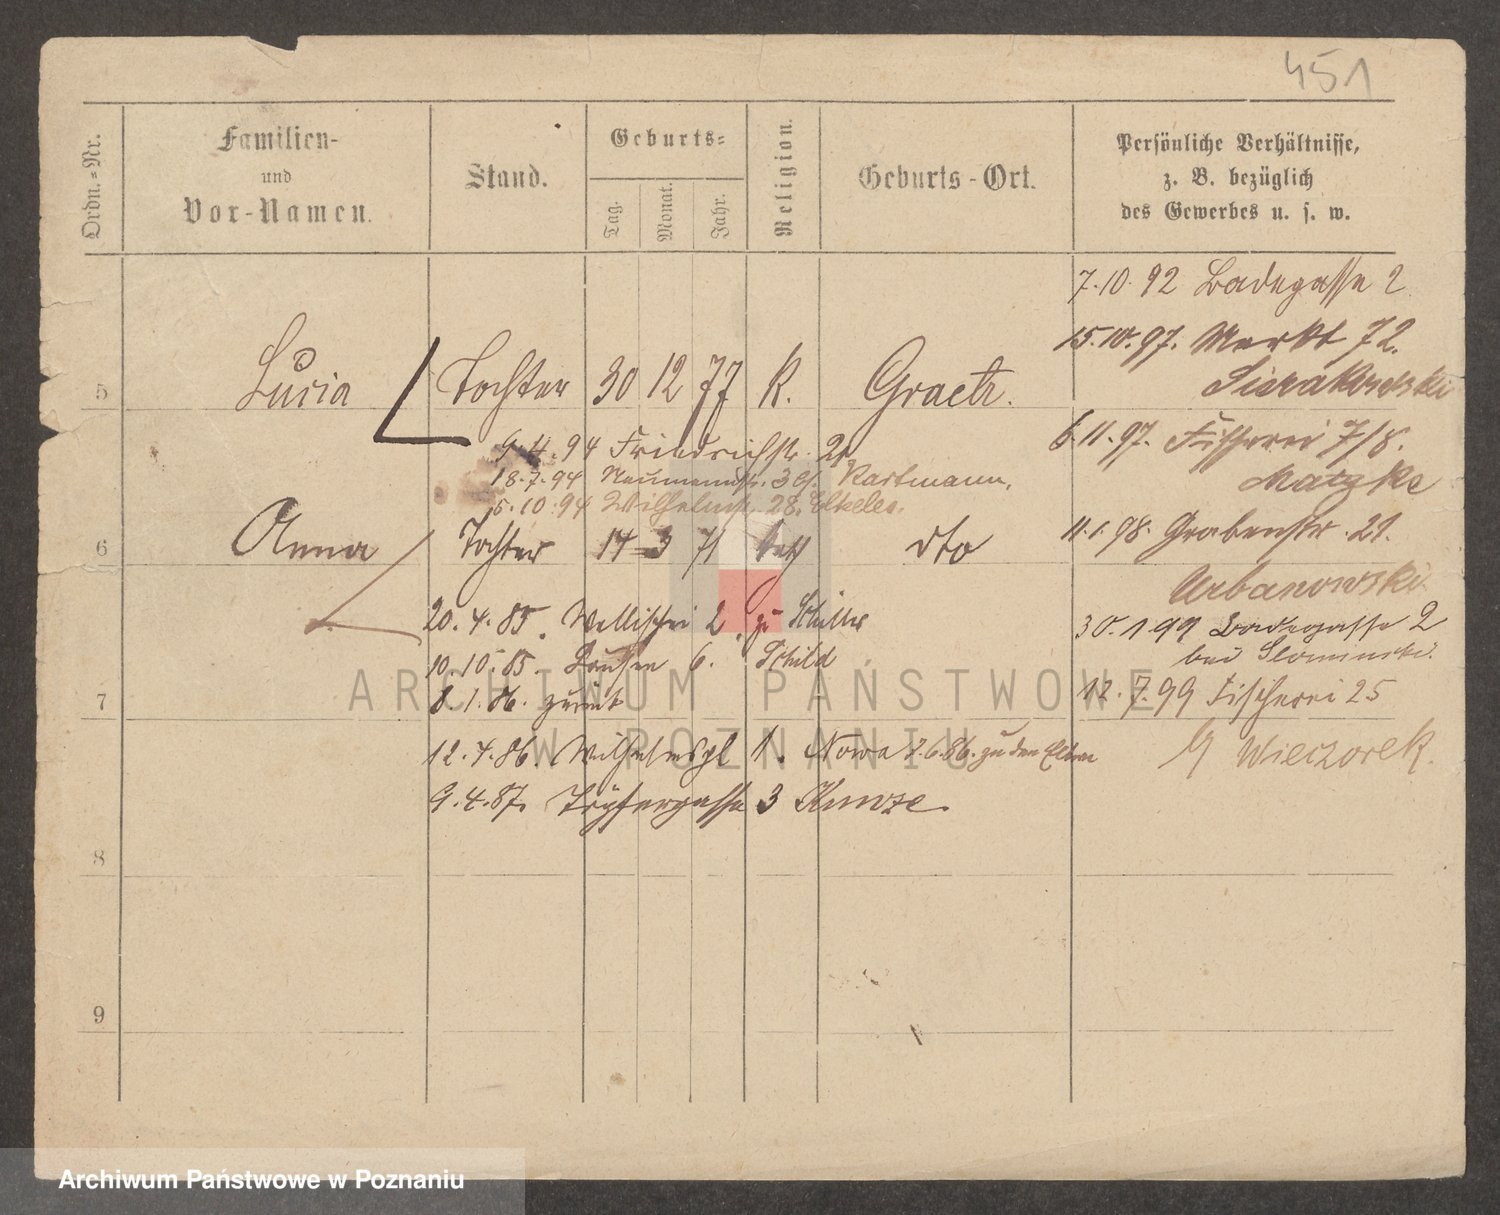 451
Ordn.-Nr.
Familien-
und
Vor-Namen.
Stand.
Geburts-
Tag.
Monat.
Jahr.
Religion.
Geburts-Ort.
Persönliche Verhältnisse,
z. B. bezüglich
des Gewerbes u. s. w.
7.10.92 Badegasse 2
15.10.97. Markt 72.
Sierakowski
5 Lucia Tochter 30 12 77 K. Graetz.
6.11.97. Fischerei 7/8.
Matzke
9.4.94 Friedrichstr. 2
18.7.94 Neumannstr. Kartmann.
5.10.94 Wilhelmstr. 28. Elkeles.
11.1.98. Grabenstr. 21.
Urbanowski
6 Anna Tochter 14 3 71 kath dto
20.4.85. Wallischei 2 zu Schiller
30.1.99 Badegasse 2
bei Slominski.
10.10.85. 6. Schild
8.1.86. zurück
12.7.99 Fischerei 25
7
12.4.86. Wilhelmspl 1. Nowa 2.6.86. zu den Eltern
Wieczorek.
9.4.87. Töpfergasse 3 Kunze.
8
9
ARCHIWUM PAŃSTWOWE
W POZNANIU
Archiwum Państwowe w Poznaniu